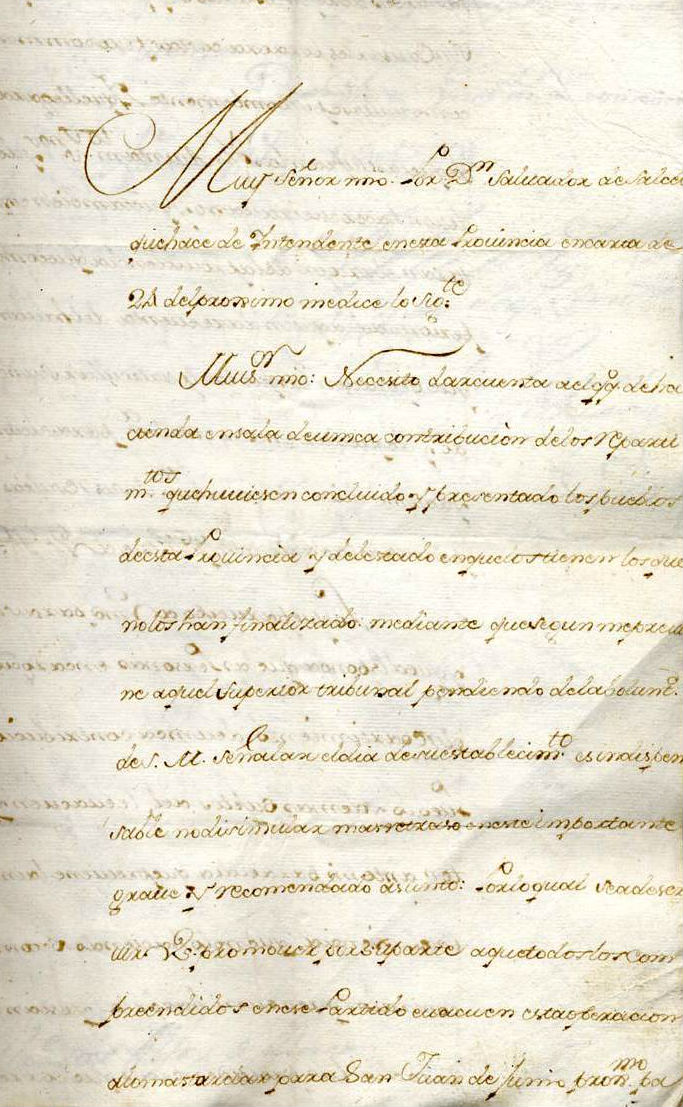 Muy Señor mio: Por Dn Salvador de Salced
que hace de Intendente en esta Provincia en carta de
24 del proximo me dice lo sigte
Mui Sor mio: Necesito dar cuenta a el de ha
cienda en sala de unica contribuciòn de los reparti
mtos que huviesen concluido y presentado los pueblos
de esta Provincia y del estado en que los tienen los que
no los han finalizado: mediante que segun me previe
ne aquel Superior tribunal pendiendo de la bolunt.
de S. M. Señalar el dia de su establecimto es indispen
sable no disimular mas retraso en este importante
grave y recomendado asunto: Por lo qual se ha de ser
vir V. promover por su parte a que todos los com
preendidos en ese Partido evacuen esta operacion
a lo mas tardar para San Juan de Junio proxmo pa